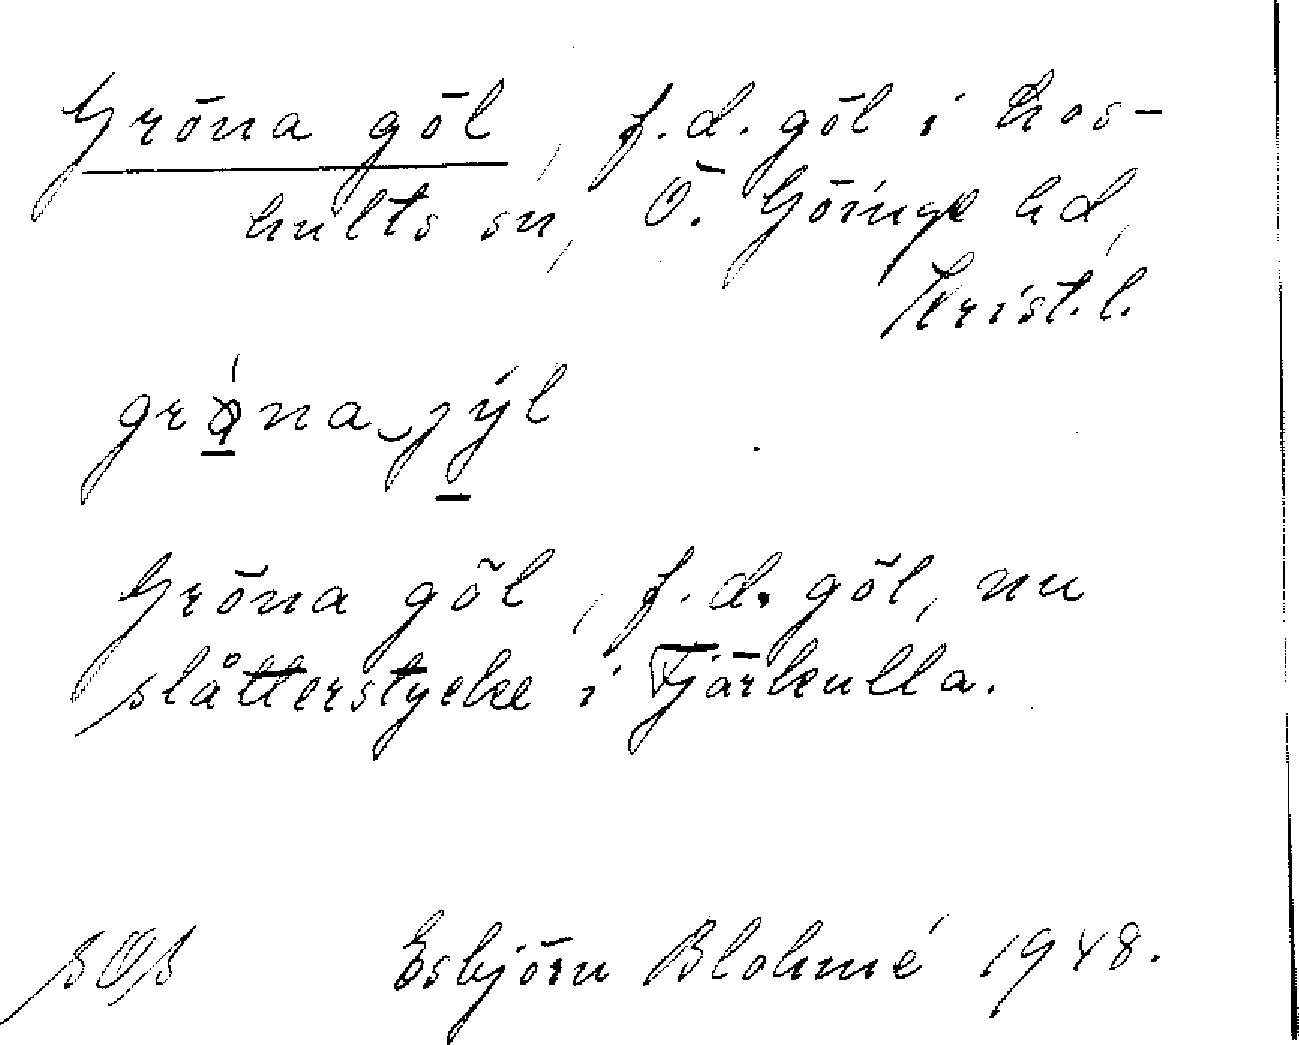 Gröna göl, f.d. göl i Los-
hults sn, Ö. Göinge hd,
Krist.l.
Gröna göl, f.d. göl, nu
slåtterstycke i Tjärkulla.
Esbjörn Blohmé 1948.